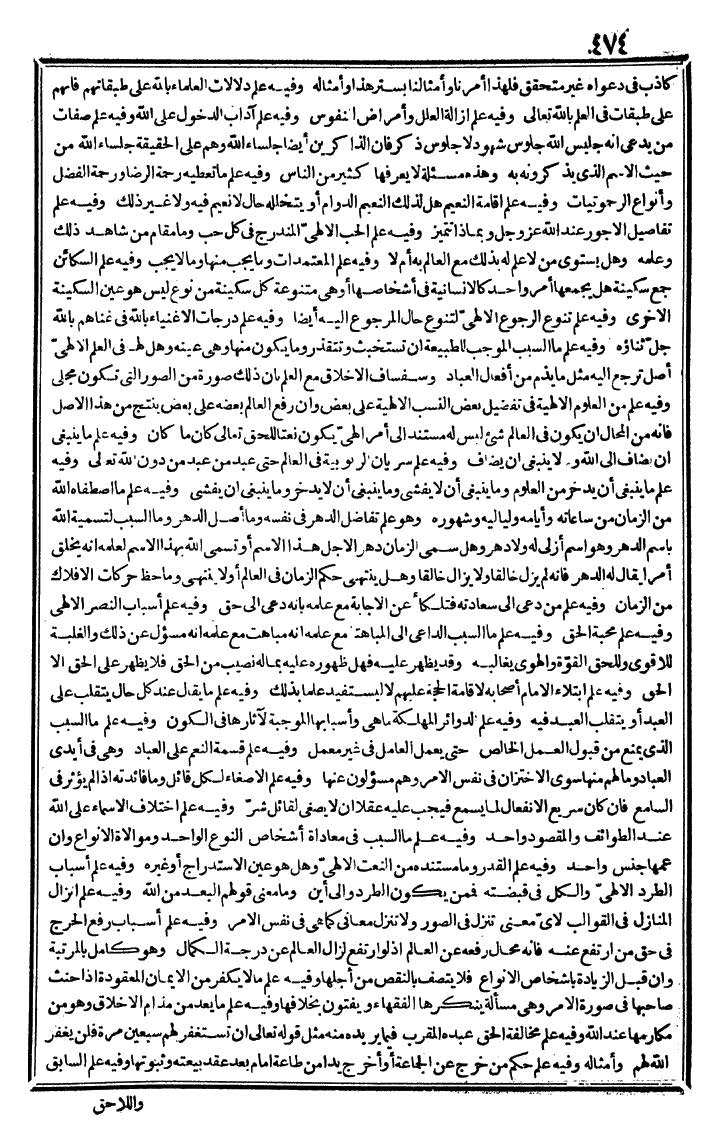 ٤٧٤
كاذب فى دعواه غير متحقق فلهذا أمرنا وأمثالنا بستر هذا وأمثاله وفيه علم دلالات العلماء بالله على طبقاتهم فانهم
على طبقات فى العلم بالله تعالى وفيه علم ازالة العلل وأمراض النفوس وفيه علم آداب الدخول على الله وفيه علم صفات
من يدعى انه جليس الله جلوس شهود لا جلوس ذكر فان الذاكرين أيضا جلساء الله وهم على الحقيقة جلساء الله من
حيث الاسم الذى يذكرونه به وهذه مسئلة لا يعرفها كثير من الناس وفيه علم ما تعطيه رحمة الرضا ورحمة الفضل
وأنواع الرحموتيات وفيه علم اقامة النعيم هل لذلك النعيم الدوام أو يتخلله حال لا نعيم فيه ولا غير ذلك وفيه علم
تفاصيل الاجور عند الله عز وجل وبماذا تتميز وفيه علم الحب الالهىّ المندرج فى كل حب وما مقام من شاهد ذلك
وعلمه وهل يستوى من لا علم له بذلك مع العالم به أم لا وفيه علم المعتمدات وما يجب منها وما لا يجب وفيه علم السكائن
جمع سكينة هل يجمعها أمر واحد كالانسانية فى أشخاصها أو هى متنوعة كل سكينة من نوع ليس هو عين السكينة
الاخرى وفيه علم تنوع الرجوع الالهىّ لتنوع حال المرجوع اليه أيضا وفيه علم درجات الاغنياء بالله فى غناهم بالله
جلّ ثناؤه وفيه علم ما السبب الموجب للطبيعة ان تستخبث وتتقذر وما يكون منها وهى عينه وهل لهـ فى العلم الالهىّ
أصل ترجع اليه مثل ما يذم من أفعال العباد وسفساف الاخلاق مع العلم بان ذلك صورة من الصور التى تكون مجلى
وفيه علم من العلوم الالهية فى تفضيل بعض النسب الالهية على بعض وان رفع العالم بعضه على بعض ينتج من هذا الاصل
فانه من المحال ان يكون فى العالم شئ ليس له مستند الى أمر الهىّ يكون نعتا للحق تعالى كان ما كان وفيه علم ما ينبغى
ان يضاف الى الله و لا ينبغى ان يضاف وفيه علم سريان الربوبية فى العالم حتى عبد من عبد من دون الله تعالى وفيه
علم ما ينبغى أن يدخر من العلوم وما ينبغى أن لا يفشى وما ينبغى أن لا يدخر وما ينبغى ان يفشى وفيه علم ما اصطفاه الله
من الزمان من ساعاته وأيامه ولياليه وشهوره وهو علم تفاضل الدهر فى نفسه وما أصل الدهر وما السبب لتسمية الله
باسم الدهر وهو اسم أزلى له ولا دهر وهل سمى الزمان دهر الاجل هذا الاسم أو تسمى الله بهذا الاسم لعلمه انه يخلق
أمرا يقال له الدهر فانه لم يزل خالقا ولا يزال خالقا وهل ينتهى حكم الزمان فى العالم أو لا ينتهى وما حظ حركات الافلاك
من الزمان وفيه علم من دعى الى سعادته فتلكأ عن الاجابة مع علمه بانه دعى الى حق وفيه علم أسباب النصر الالهى
وفيه علم محبة الحق وفيه علم ما السبب الداعى الى المباهتة مع علمه انه مباهت مع علمه انه مسؤل عن ذلك والغلبة
للاقوى وللحق القوّة والهوى يغالبه وقد يظهر عليه فهل ظهوره عليه بماله نصيب من الحق فلا يظهر على الحق الا
الحق وفيه علم ابتلاء الامام أصحابه لاقامة الحجة عليهم لا ليستفيد علما بذلك وفيه علم ما يقال عند كل حال يتقلب على
العبد أو يتقلب العبد فيه وفيه علم الدوائر المهلكة ما هى وأسبابها الموجبة لآثارها فى الكون وفيه علم ما السبب
الذى يمنع من قبول العمل الخالص حتى يعمل العامل فى غير معمل وفيه علم قسمة النعم على العباد وهى فى أيدى
العباد وما لهم منها سوى الاختزان فى نفس الامر وهم مسؤلون عنها وفيه علم الاصغاء لكل قائل وما فائدته اذا لم يؤثر فى
السامع فان كان سريع الانفعال لما يسمع فيجب عليه عقلا ان لا يصغى لقائل شرّ وفيه علم اختلاف الاسماء على الله
عند الطوائف والمقصود واحد وفيه علم ما السبب فى معاداة أشخاص النوع الواحد وموالاة الانواع وان
عمها جنس واحد وفيه علم القدر وما مستنده من النعت الالهىّ وهل هو عين الاستدراج أو غيره وفيه علم أسباب
الطرد الالهىّ والكل فى قبضته فمن يكون الطرد والى أين وما معنى قولهم البعد من الله وفيه علم انزال
المنازل فى القوالب لاىّ معنى تنزل فى الصور ولا تنزل معانى كما هى فى نفس الامر وفيه علم أسباب رفع الحرج
فى حق من ارتفع عنه فانه محال رفعه عن العالم اذ لو ارتفع لزال العالم عن درجة الكمال وهو كامل بالمرتبة
وان قبل الزيادة باشخاص الانواع فلا يتصف بالنقص من أجلها وفيه علم ما لا يكفر من الايمان المعقودة اذا حنث
صاحبها فى صورة الامر وهى مسألة ينكرها الفقهاء ويفتون بخلافها وفيه علم ما يعد من مذام الاخلاق وهو من
مكارمها عند الله وفيه علم مخالفة الحق عبده المقرب فيما يريده منه مثل قوله تعالى ان تستغفر لهم سبعين مرة فلن يغفر
الله لهم وأمثاله وفيه علم حكم من خرج عن الجماعة أو أخرج يدا من طاعة امام بعد عقد بيعته وثبوتها وفيه علم السابق
واللاحق